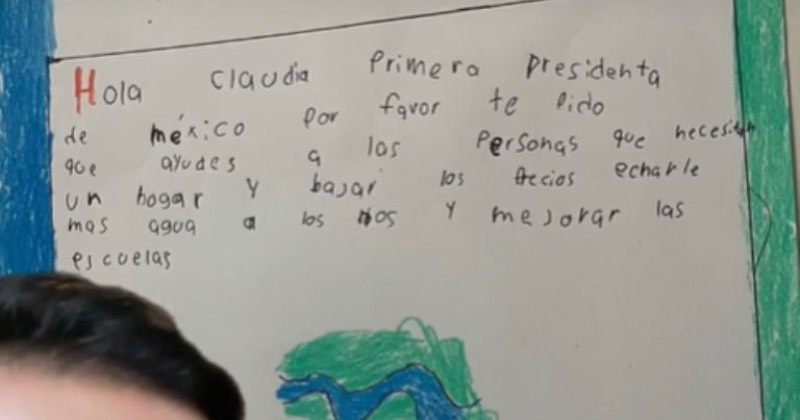 Hola Claudia Primera presidenta
de méxico por favor te pido
que ayudes a las personas que necesitan
un hogar y bajar los precios echarle
mas agua a los rios y mejorar las
escuelas